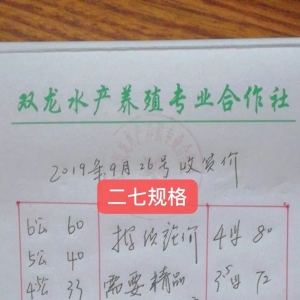 双龙水产养殖专业合作社
2019年9月26号收货价
二七规格
6公 60 按质论价 4母 80
5公 40
4.5公 33 需要精品 3.5母 72